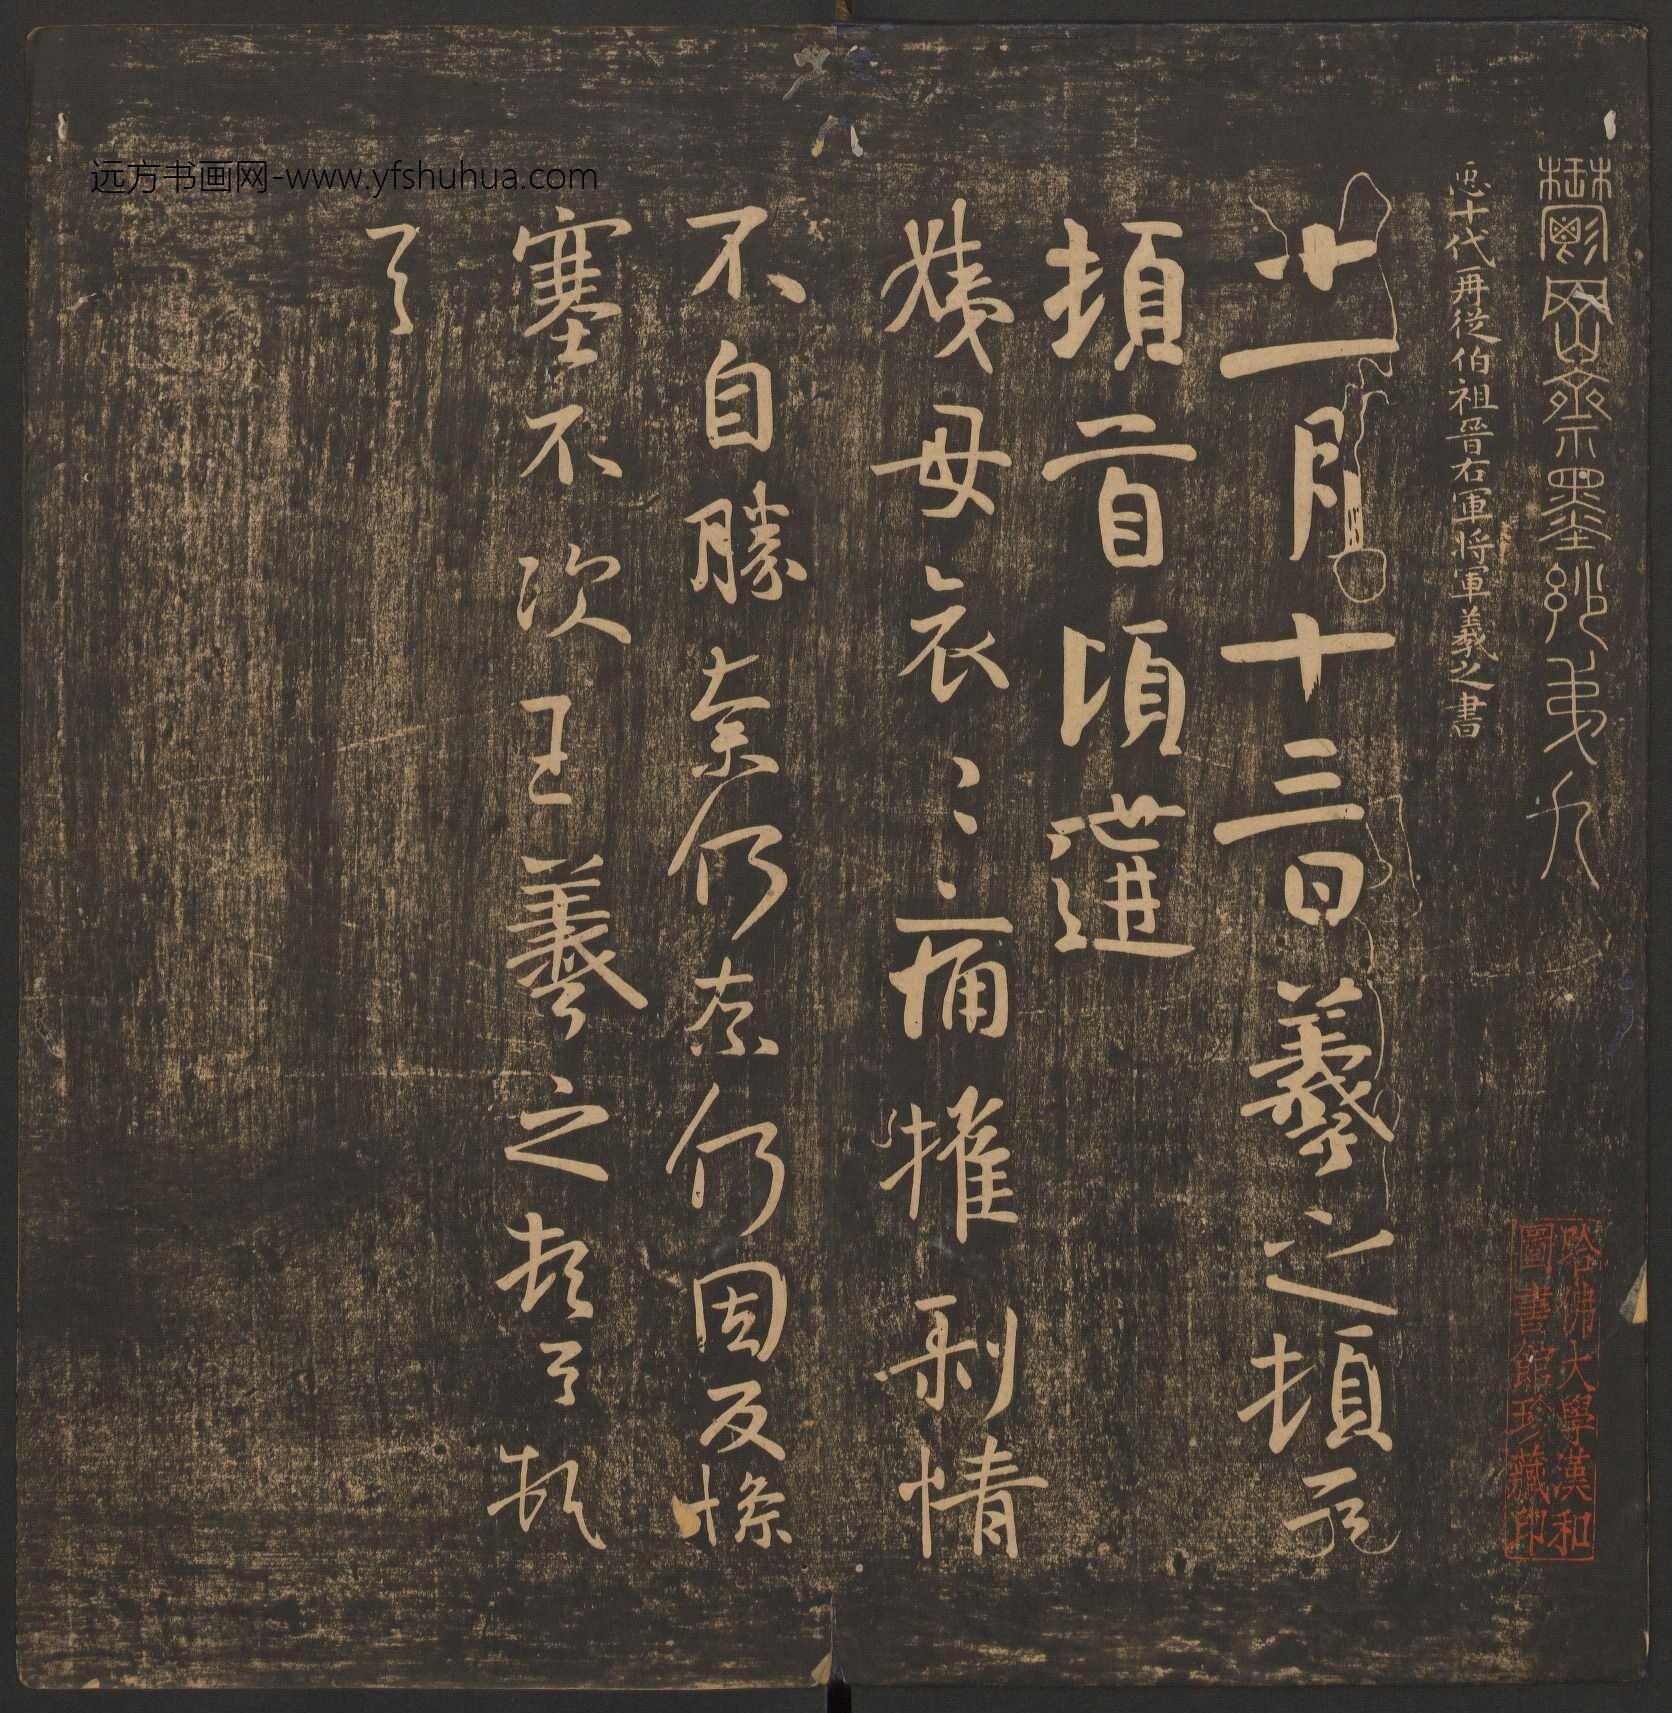 鬱岡齋墨玅弟九
𢘑十代再從伯祖晉右軍將軍羲之書
十一月十三日羲之頓首
頓首頃遘
姨母哀〻痛摧剥情
不自勝奈何奈何因反慘
塞不次王羲之頓首頓
首
哈佛大學漢和
圖書館珍藏印
远方书画网-www.yfshuhua.com